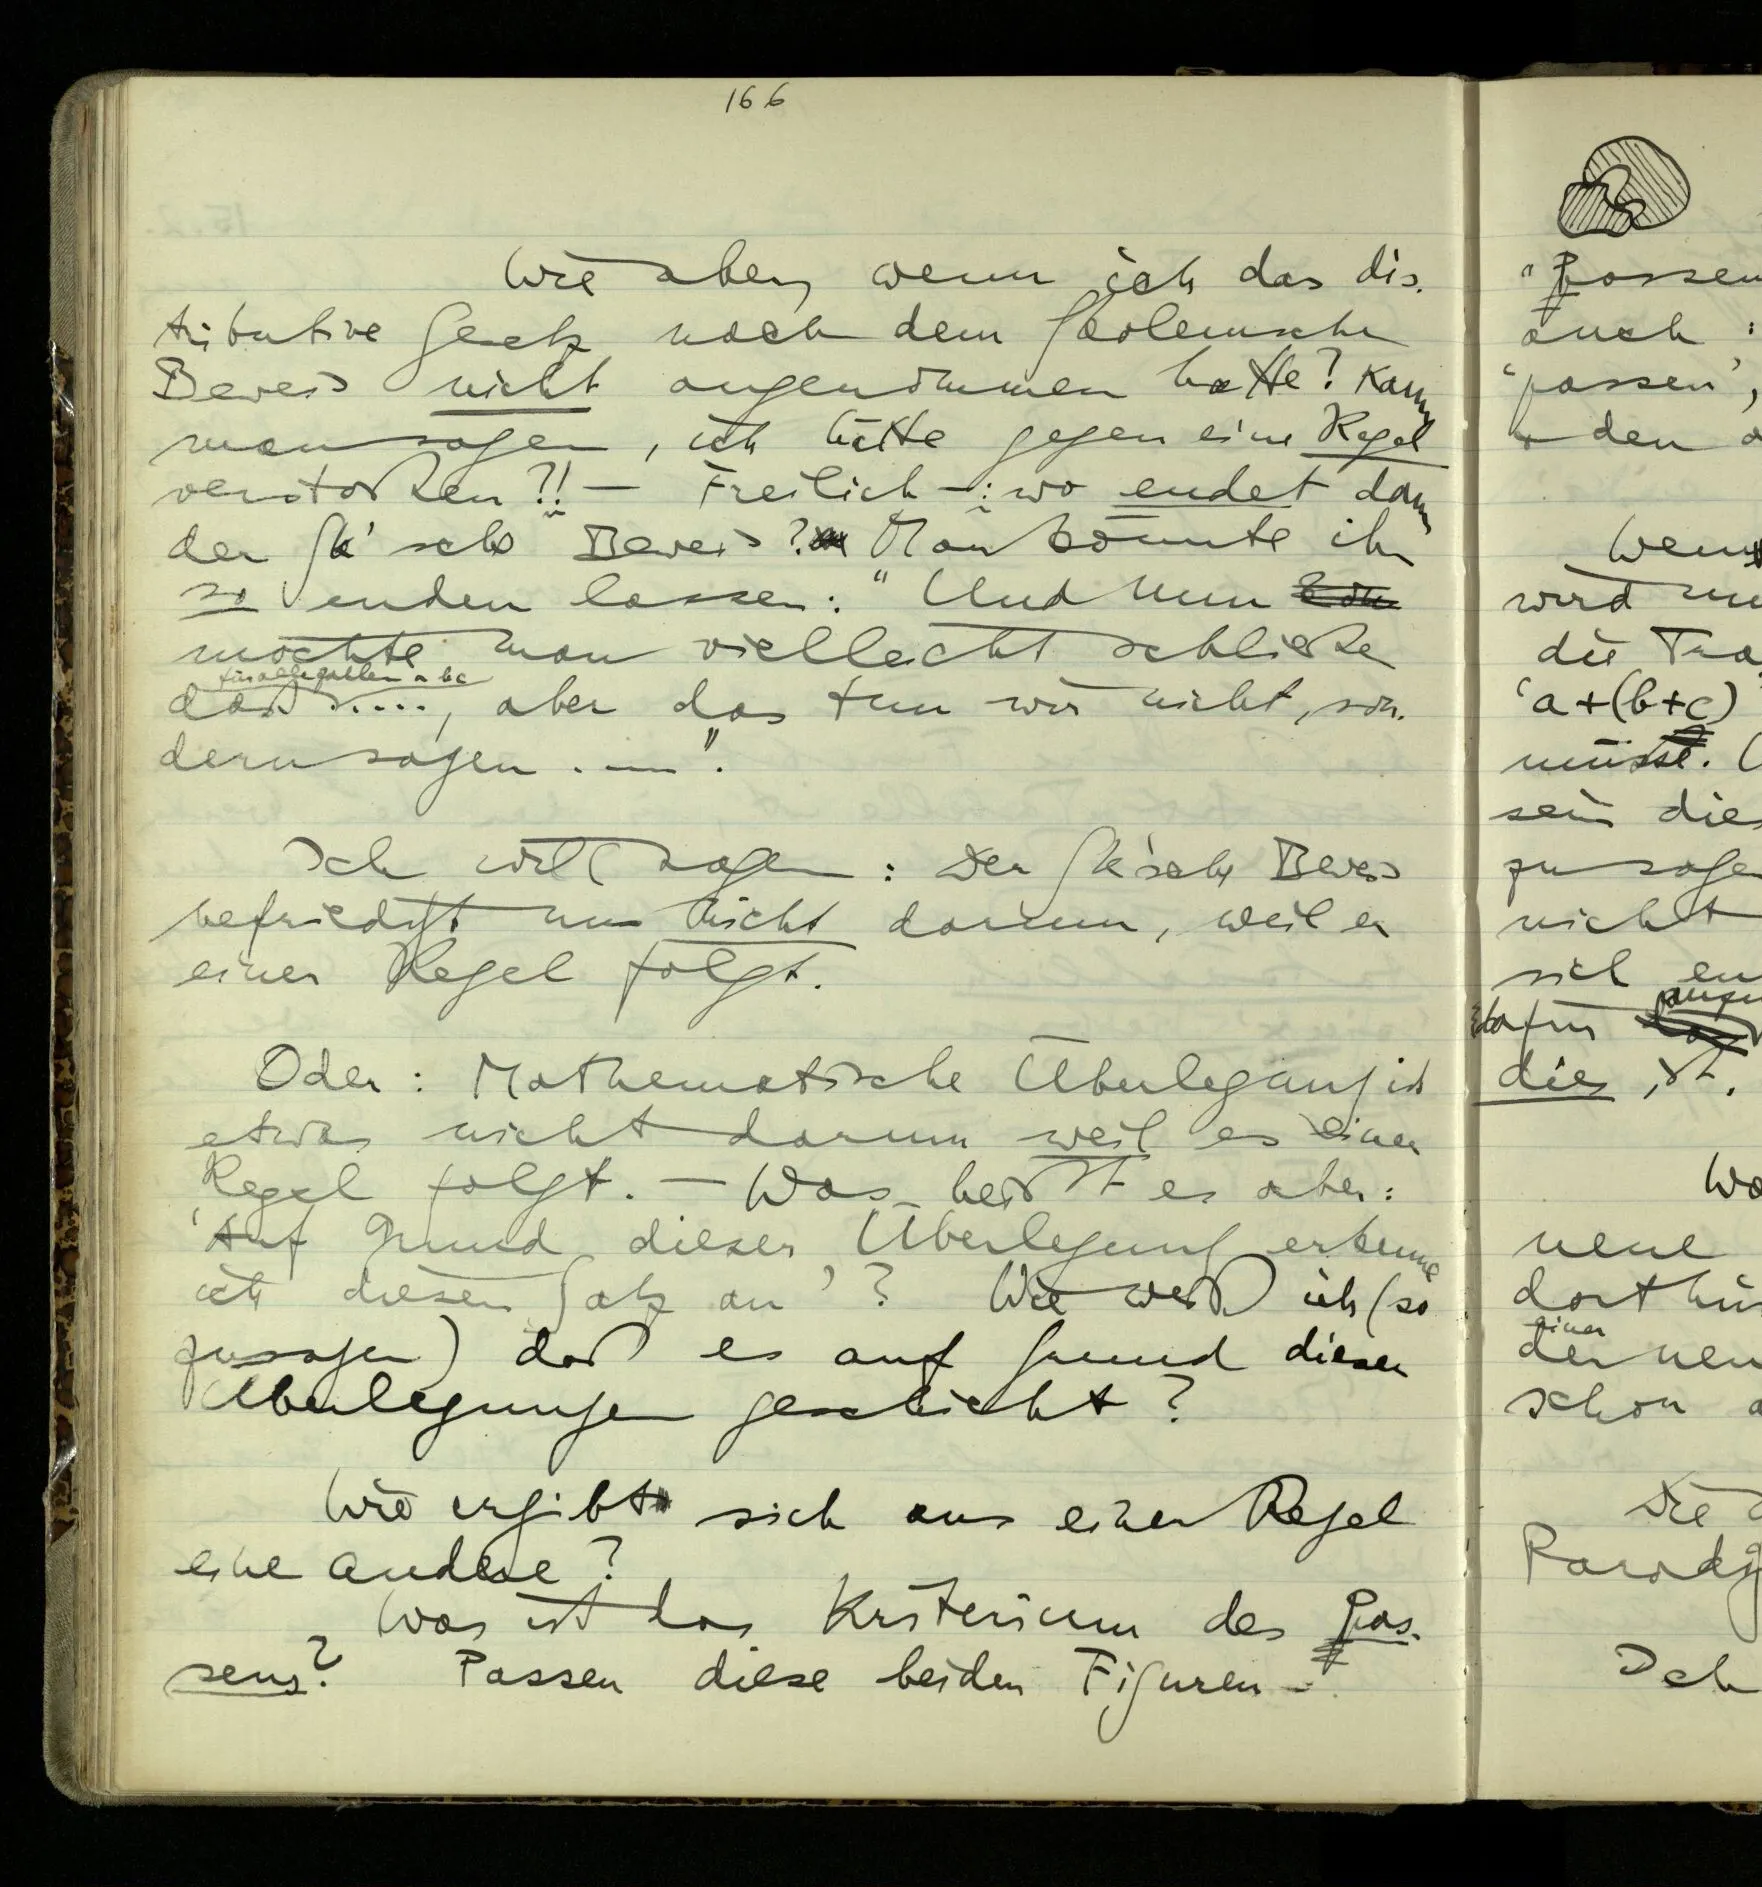 166
Wie aber, wenn ich das dis-
tributive Gesetz nach dem Skolemschen
Beweis nicht angenommen hätte? Kann
man sagen, ich hätte gegen eine Regel
verstoßen?! — Freilich —: wo endet dann
der Sk'sche Beweis? Man könnte ihn
so enden lassen: "Und nun
möchte man vielleicht schließen
für alle Zahlen a b c
daß ...., aber das tun wir nicht, son-
dern sagen . —".
Ich will sagen: Der Sk'sche Beweis
befriedigt uns nicht darum, weil er
einer Regel folgt.
Oder: Mathematische Überlegung ist
etwas nicht darum weil es einer
Regel folgt. — Was heißt es aber:
'Auf Grund dieser Überlegung erkenne
ich diesen Satz an'? Wie weiß ich (so
zusagen) daß es auf Grund dieser
Überlegungen geschieht?
Wie ergibt sich aus einer Regel
eine andere?
Was ist das Kriterium des Pas-
sens? Passen diese beiden Figuren —
"Passen
auch:
'passen',
den
Wenn
wird
die
'a+(b+c)
müsse.
sein die
zu sagen
nicht
sich
dafür
dies ist.
neue
dort
einer
der neu
schon
Die
Paradig
Ich